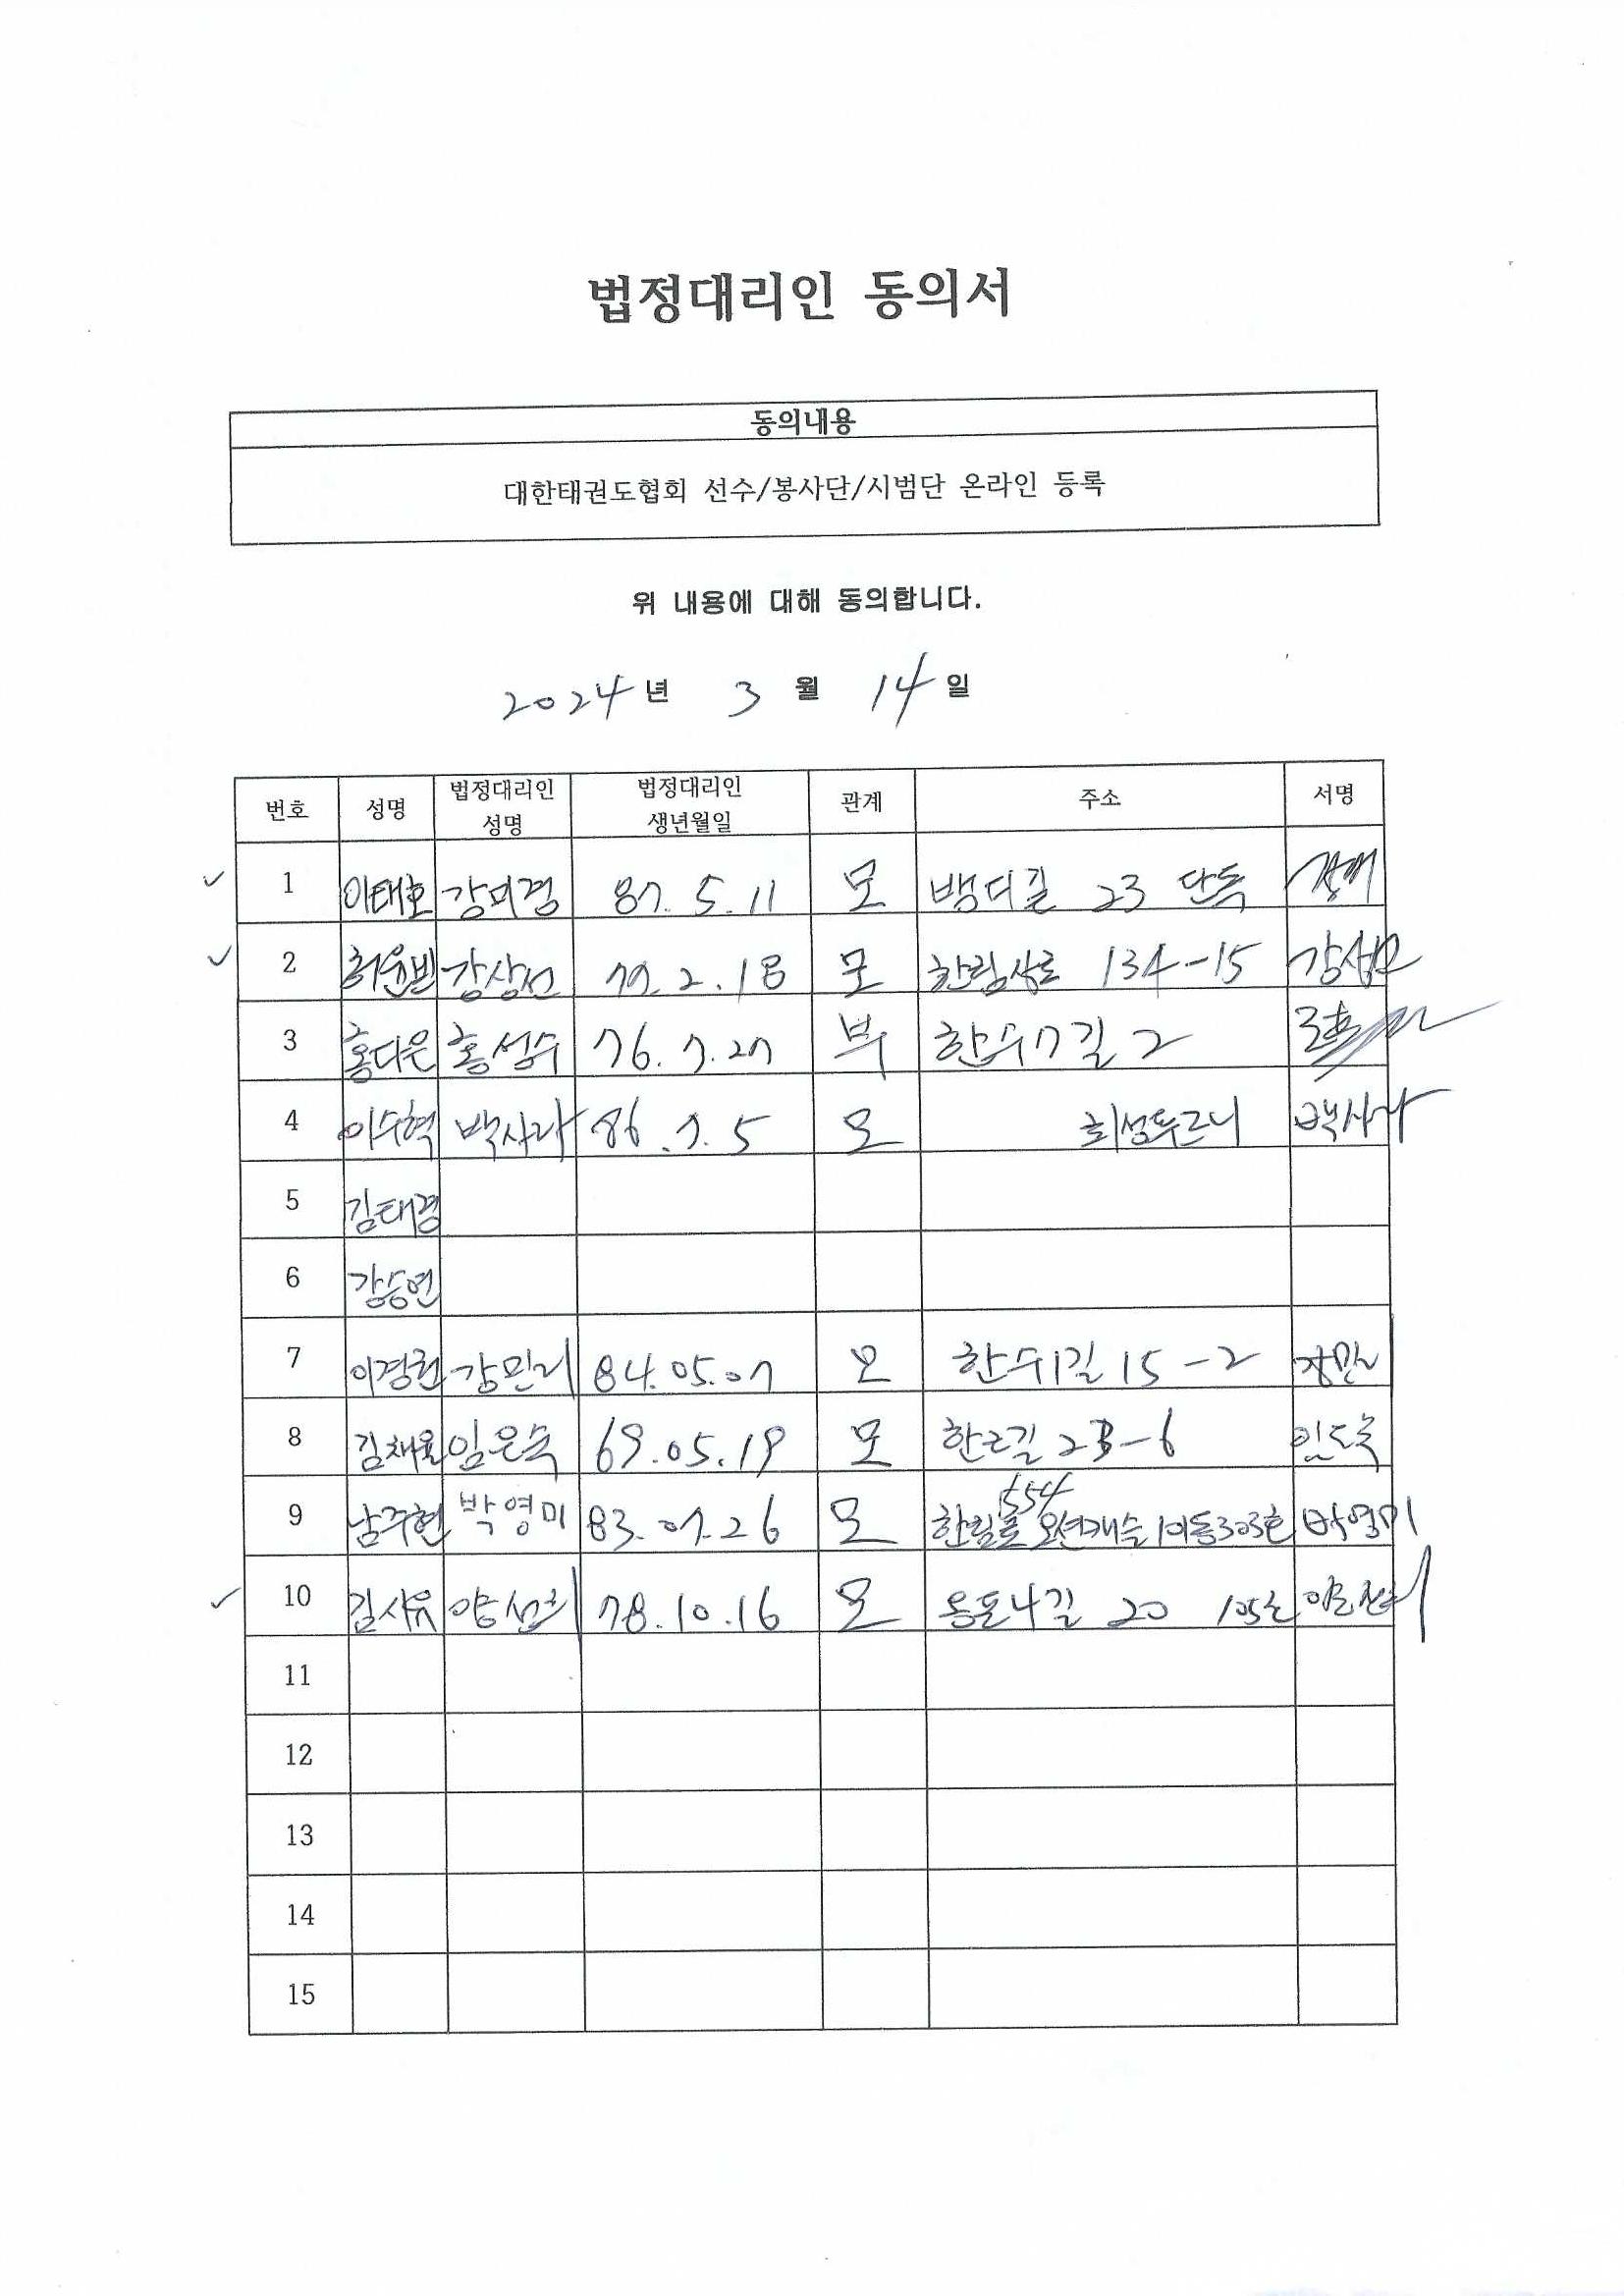 법정대리인 동의서
동의내용
대한태권도협회 선수/봉사단/시범단 온라인 등록
위 내용에 대해 동의합니다.
2024년 3월 14일
번호 성명 법정대리인 성명 법정대리인 생년월일 관계 주소 서명
1 이태호 강미경 87. 5. 11 모 뱅디길 23 단독
2 허윤빈 강상선 79. 2. 18 모 한림상로 134-15
3 홍다은 홍성수 76. 7. 27 부 한수7길 2
4 이수혁 박사라 86. 7. 5 모 희성투르니 박사라
5 김태경
6 강승연
7 이경헌 강민리 84. 05. 07 모 한수1길 15-2
8 김채율 임은숙 69. 05. 19 모 23-6
9 남주현 박영미 83. 07. 26 모 한림로 554 오션캐슬 101동 303호 박영미
10 김시유 양선희 78. 10. 16 모 옹포4길 20 105호
11
12
13
14
15